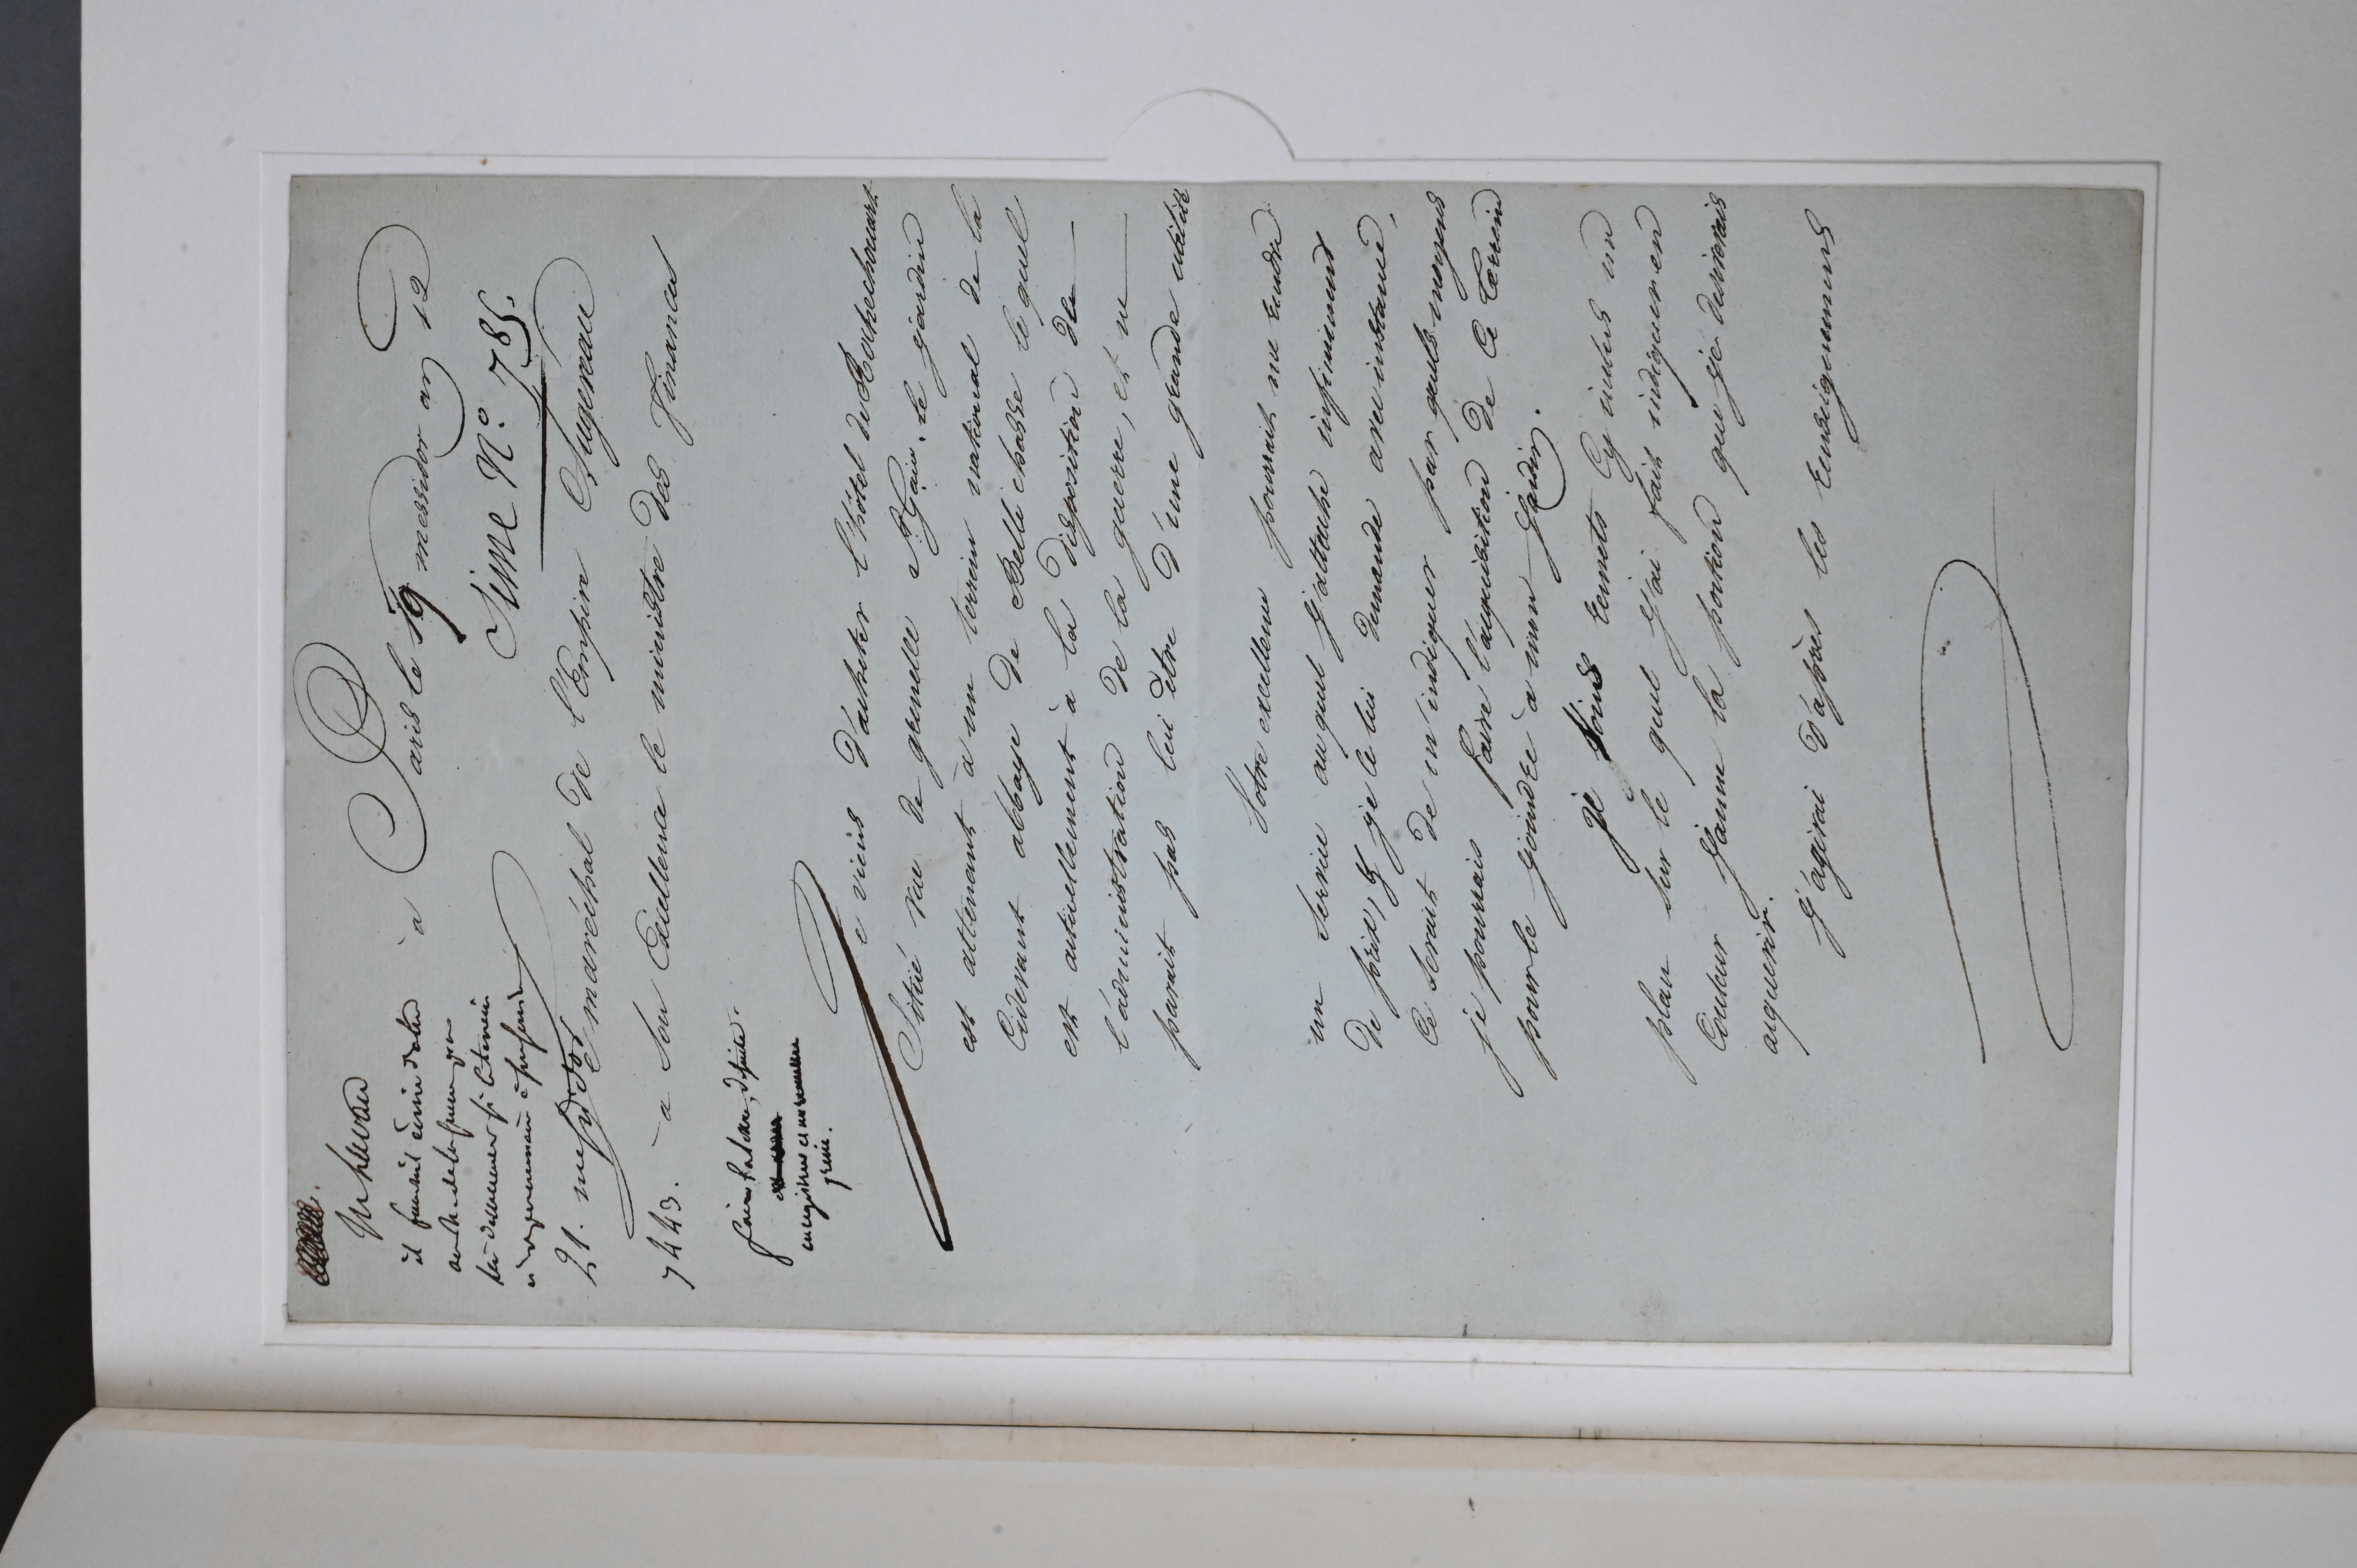 à Paris le 19 messidor an 12
Sime N.º 785.
21. messidor
Le maréchal de l'Empire Augereau
7443.
à Son Excellence le ministre des finances
Je viens d'acheter l'hôtel de Rochechouart
Situé rue de grenelle St. G.ain. le jardin
est attenant à un terrein national de la
Cidevant abbaye de Belle chasse le quel
est actuellement à la disposition de
l'administration de la guerre, et ne
parait pas lui être d'une grande utilité
Votre excellence pourrait me rendre
un Service auquel j'attache infiniment
de prix, & je le lui demande avec instance,
Ce serait de m'indiquer par quels moyens
je pourrais faire l'acquisition de Ce terrein
pour le joindre à mon jardin.
Je Vous remets Cy inclus un
plan sur le quel j'ai fait indiquer en
Couleur jaune la portion que je désirerais
acquerir.
J'agirai d'après les renseignemens